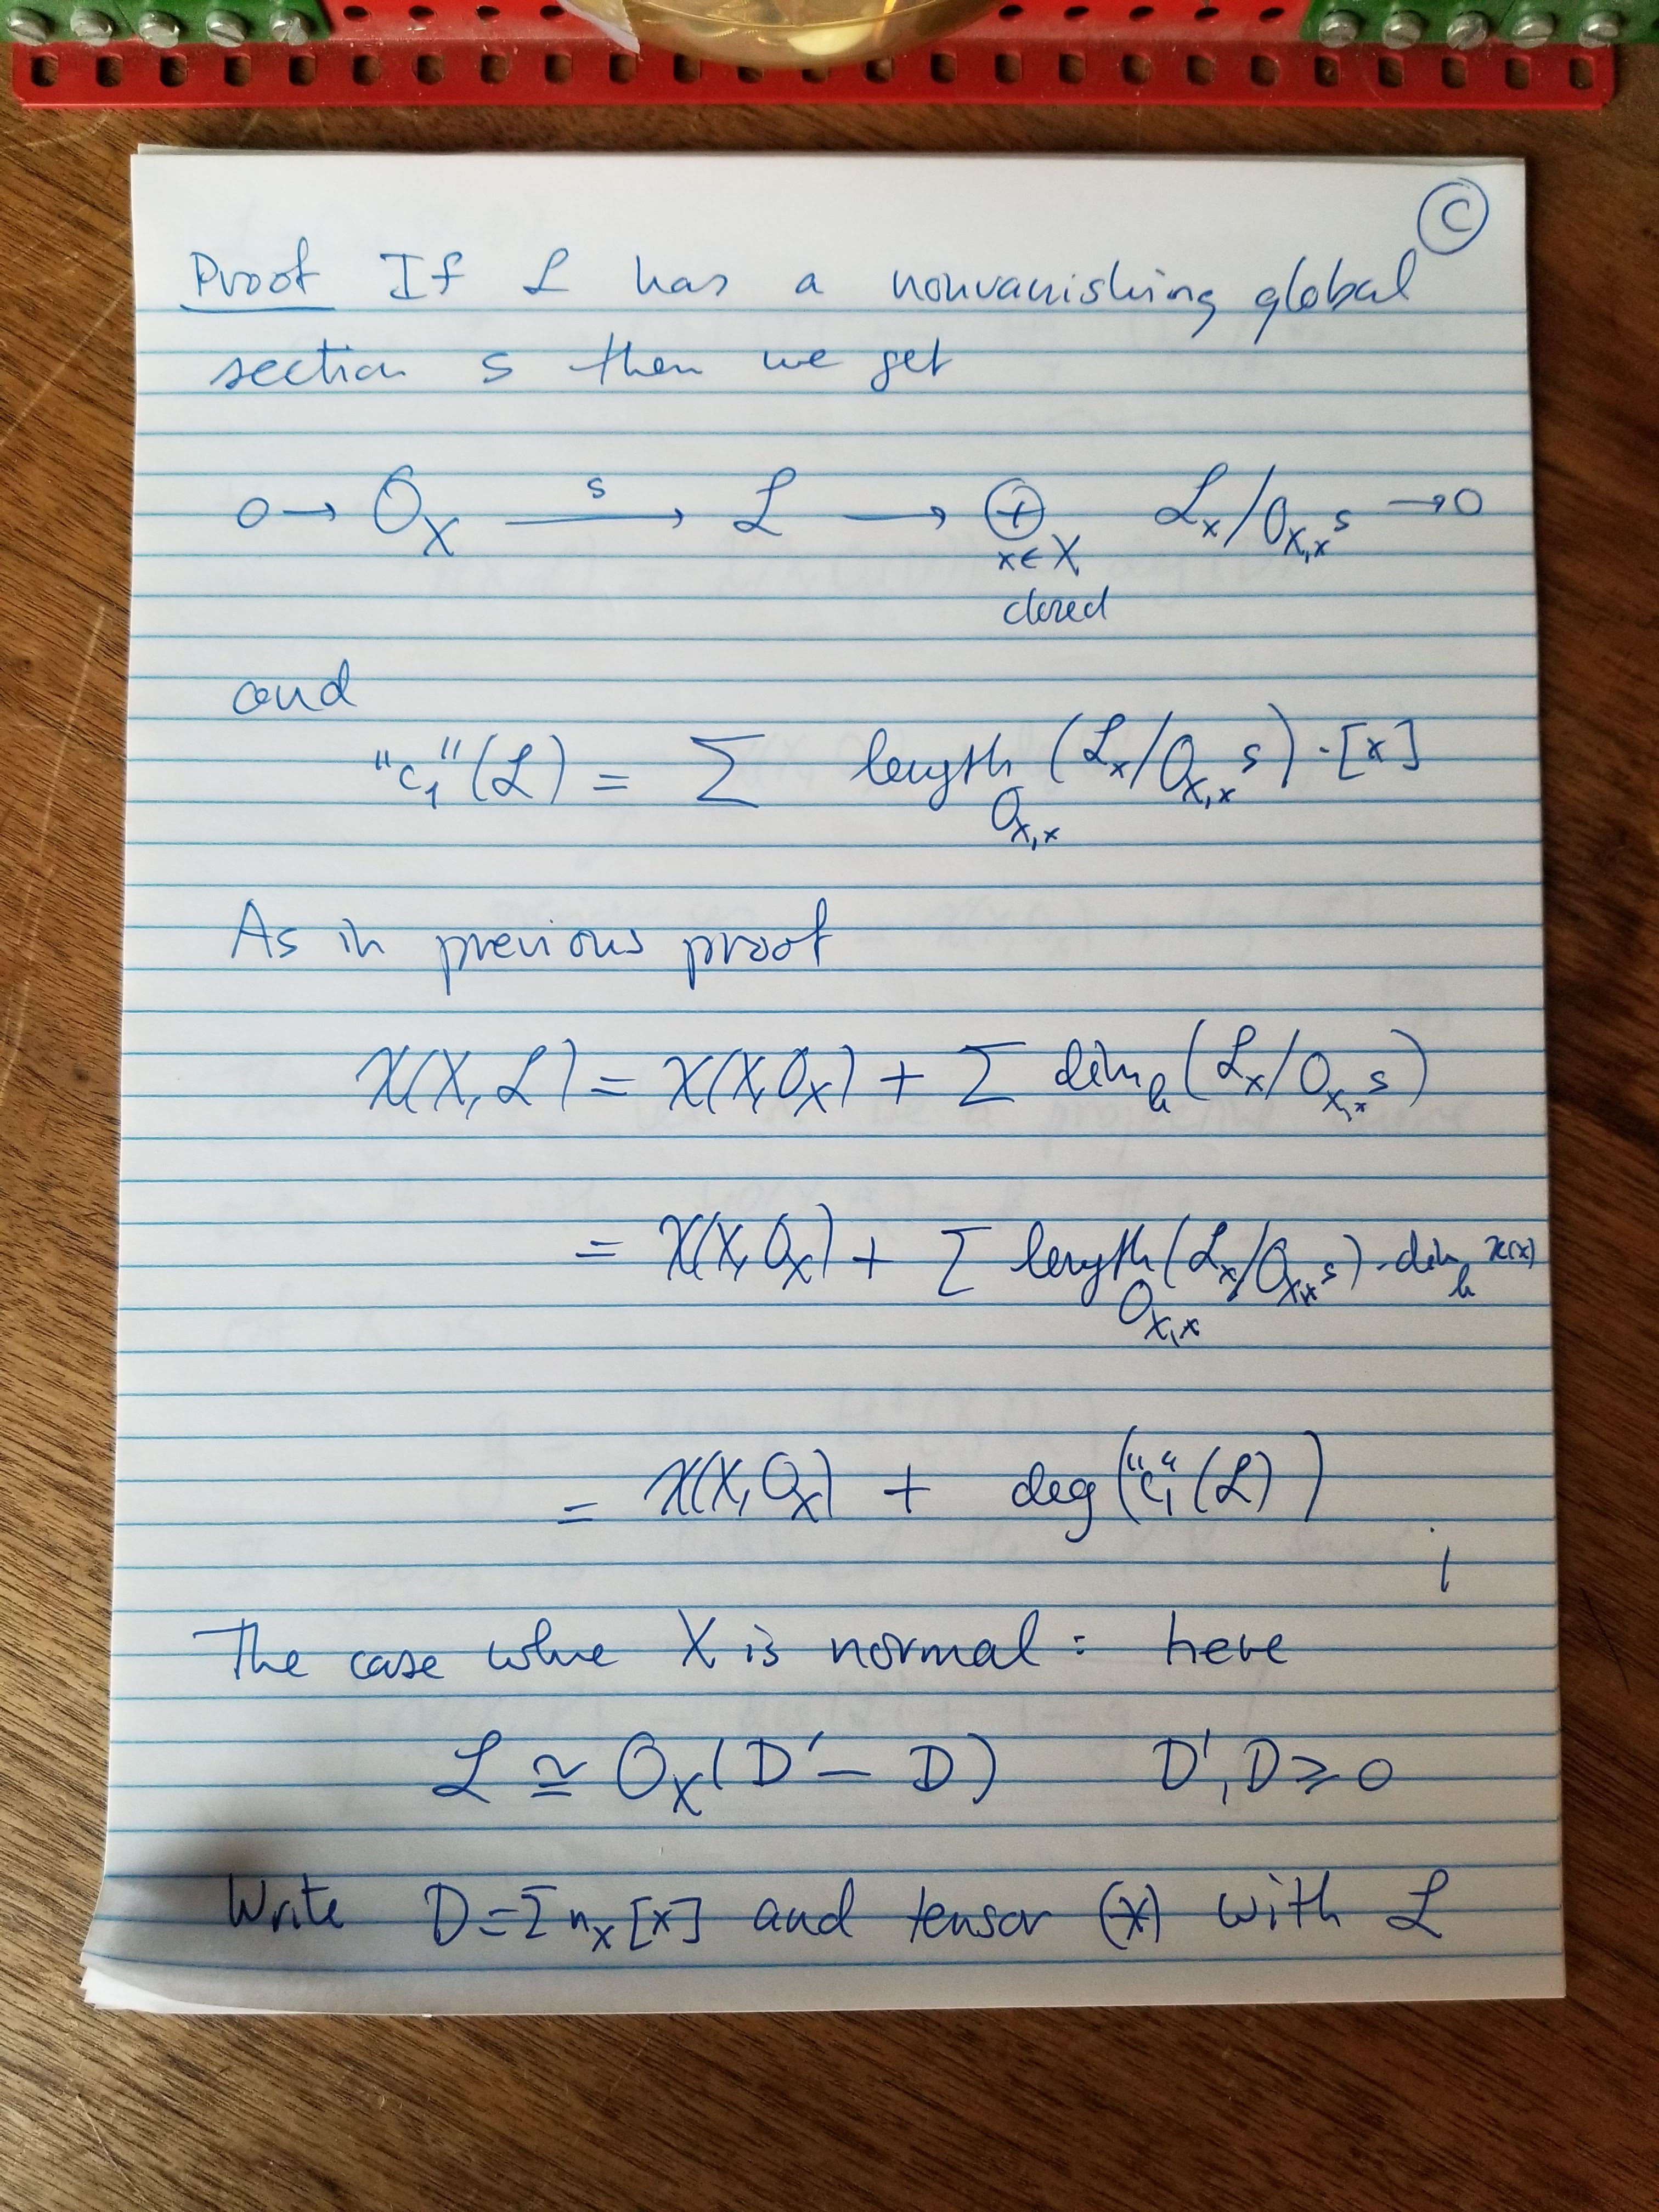 Ⓒ
Proof If ℒ has a nonvanishing global
section s then we get
0 → O_X —s→ ℒ → ⊕_{x∈X closed} ℒ_x/O_{X,x} s → 0
and
"c_1"(ℒ) = Σ length_{O_{X,x}} (ℒ_x/O_{X,x} s)·[x]
As in previous proof
χ(X,ℒ) = χ(X,O_X) + Σ dim_k (ℒ_x/O_{X,x} s)
= χ(X,O_X) + Σ length_{O_{X,x}} (ℒ_x/O_{X,x} s)·dim_k κ(x)
= χ(X,O_X) + deg("c_1"(ℒ))
The case where X is normal: here
ℒ ≅ O_X(D' − D) D', D ≥ 0
Write D = Σ n_x [x] and tensor (*) with ℒ